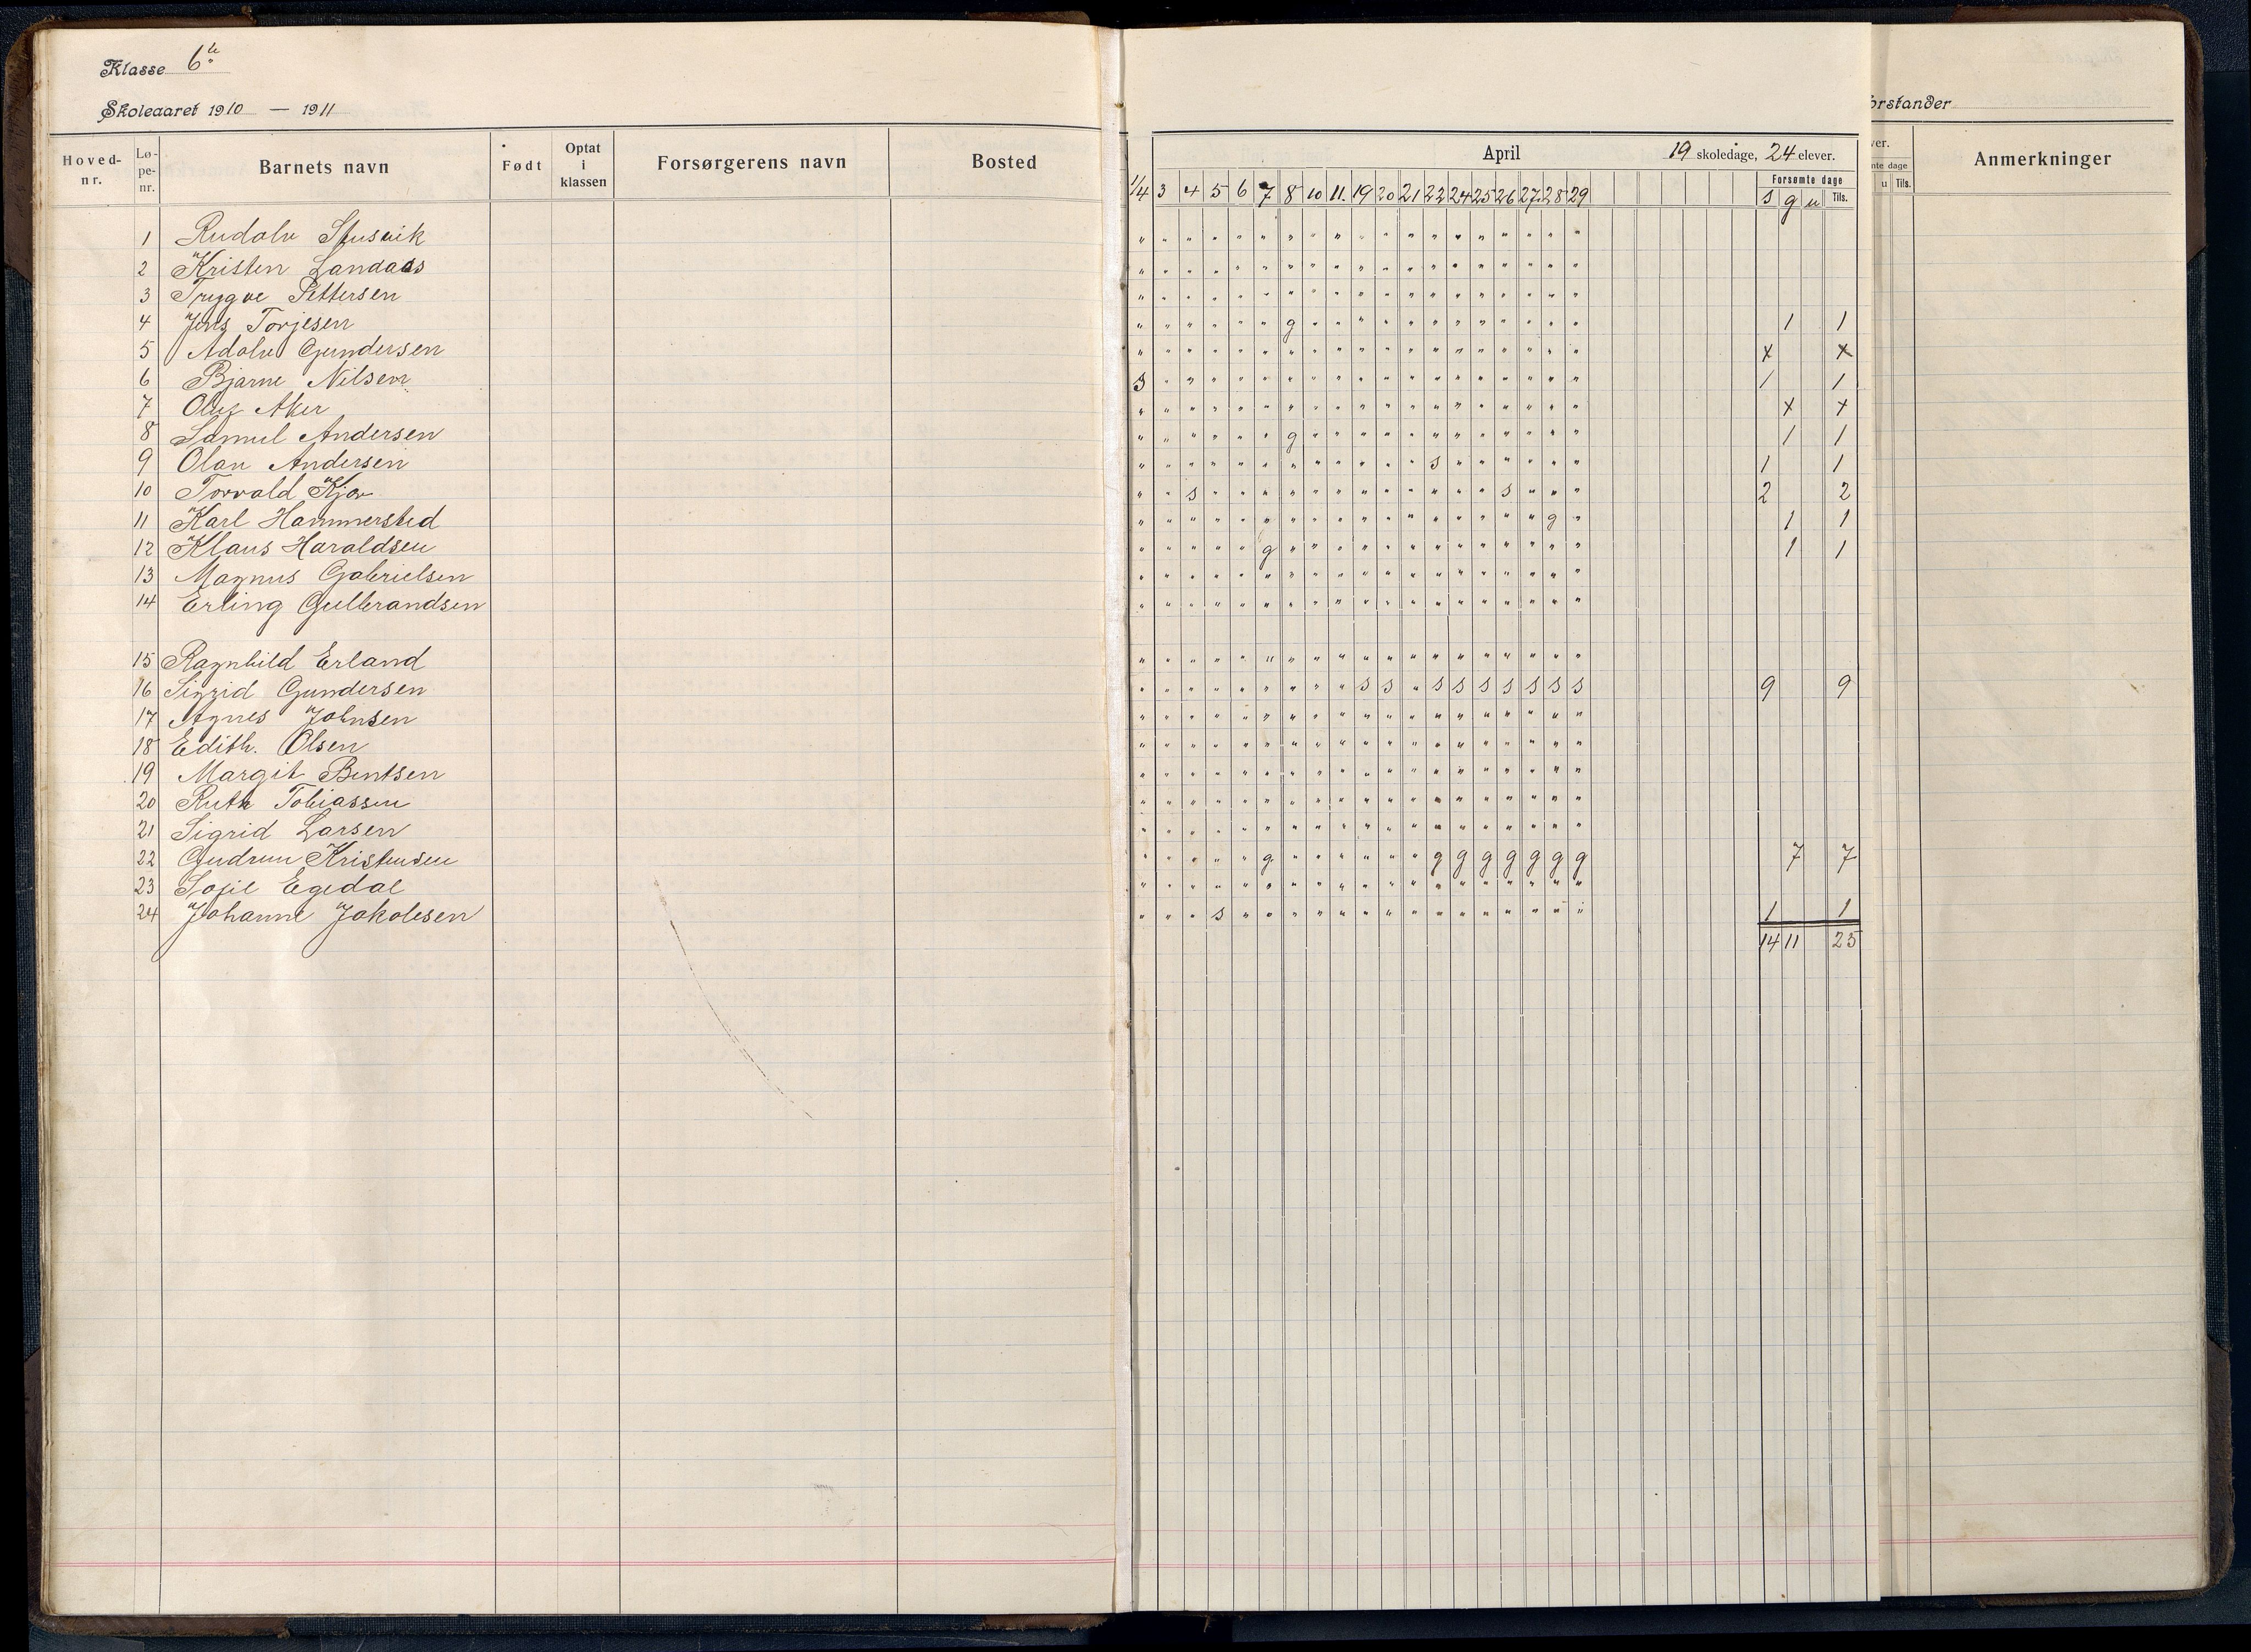 Klasse 6te
Skoleaaret 1910 — 1911
Hoved-nr. Lø-pe-nr. Barnets navn Født Optat i klassen Forsørgerens navn Bosted
1 Rudolv Stusvik
2 Kristen Landaas
3 Trygve Pettersen
4 Jens Torjesen
5 Adolv Gundersen
6 Bjarne Nilsen
7 Oluf Aker
8 Samul Andersen
9 Olav Andersen
10 Torvald Kjær
11 Karl Hammersted
12 Klaus Haraldsen
13 Magnus Gabrielsen
14 Erling Gulbrandsen
15 Ragnhild Erland
16 Sigrid Gundersen
17 Agnes Johnsen
18 Edith. Olsen
19 Margit Bentsen
20 Ruth Tobiassen
21 Sigrid Larsen
22 Gudrun Kristensen
23 Sofie Egedal
24 Johanne Jakobsen
April 19 skoledage, 24 elever.
Forsømte dage
1/4 3 4 5 6 7 8 10 11. 19 20 21 22 24 25 26 27 28 29 s g u Tils.
g 1 1
x x
s 1 1
x x
g 1 1
s 1 1
s s 2 2
g 1 1
g 1 1
s s s s s s s s s 9 9
g g g g g g g g 7 7
s 1 1
14 11 25
orstander
ver.
mte dage
u Tils.
Anmerkninger